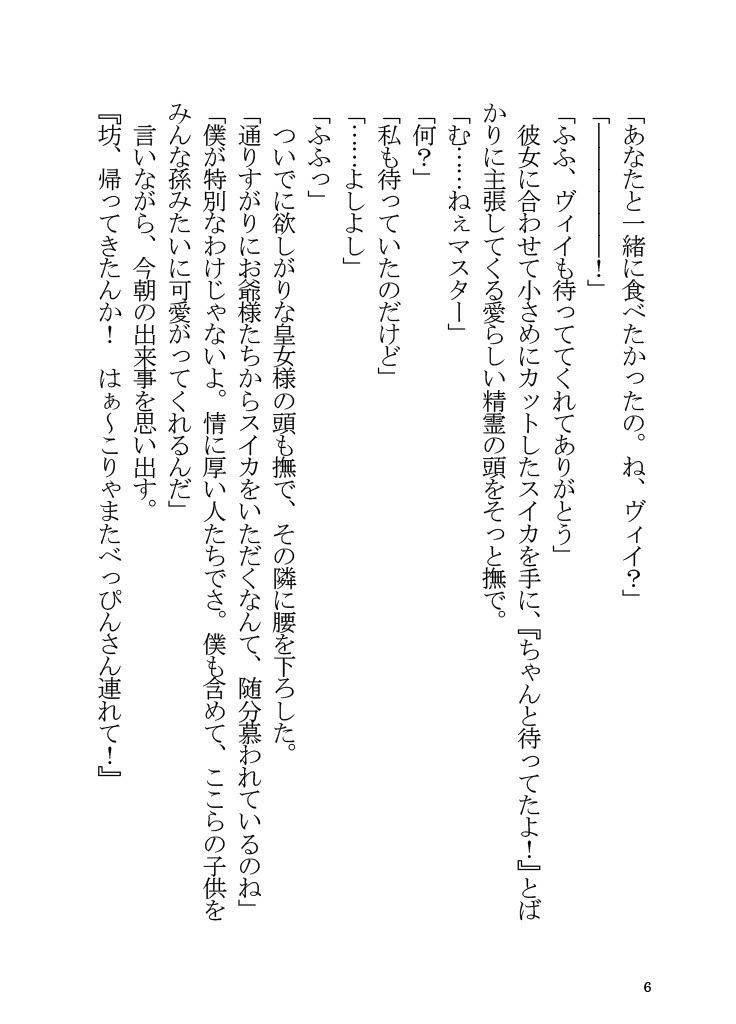 「あなたと一緒に食べたかったの。ね、ヴィイ？」
「――――――！」
「ふふ、ヴィイも待っててくれてありがとう」
　彼女に合わせて小さめにカットしたスイカを手に、『ちゃんと待ってたよ！』とば
かりに主張してくる愛らしい精霊の頭をそっと撫で。
「む……ねぇマスター」
「何？」
「私も待っていたのだけど」
「……よしよし」
「ふふっ」
　ついでに欲しがりな皇女様の頭も撫で、その隣に腰を下ろした。
「通りすがりにお爺様たちからスイカをいただくなんて、随分慕われているのね」
「僕が特別なわけじゃないよ。情に厚い人たちでさ。僕も含めて、ここらの子供を
みんな孫みたいに可愛がってくれるんだ」
　言いながら、今朝の出来事を思い出す。
『坊、帰ってきたんか！　はぁ～こりゃまたべっぴんさん連れて！』
6